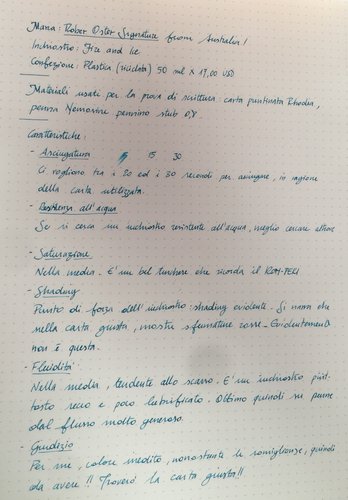 Marca: Rober Oster Signature from Australia!
Inchiostro: Fire and Ice
Confezione: Plastica (riciclata) 50 ml x 17,00 USD
Materiali usati per la prova di scrittura: carta puntinata Rhodia,
penna Nemosine pennino stub 0,8
Caratteristiche:
- Asciugatura 5 15 30
Ci vogliono tra i 20 ed i 30 secondi per asciugare, in ragione
della carta utilizzata.
- Resistenza all'acqua
Se si cerca un inchiostro resistente all'acqua, meglio cercare altrove
- Saturazione
Nella media. E' un bel turchese che ricorda il KON-PEKI
- Shading
Punto di forza dell'inchiostro: shading evidente. Si narra che
nella carta giusta, mostri sfumature rosse. Evidentemente
non è questa.
- Fluidità
Nella media, tendente allo scarso. E' un inchiostro piut-
tosto secco e poco lubrificato. Ottimo quindi su penne
dal flusso molto generoso.
- Giudizio
Per me, colore inedito, nonostante le somiglianze, quindi
da avere!! Troverò la carta giusta!!